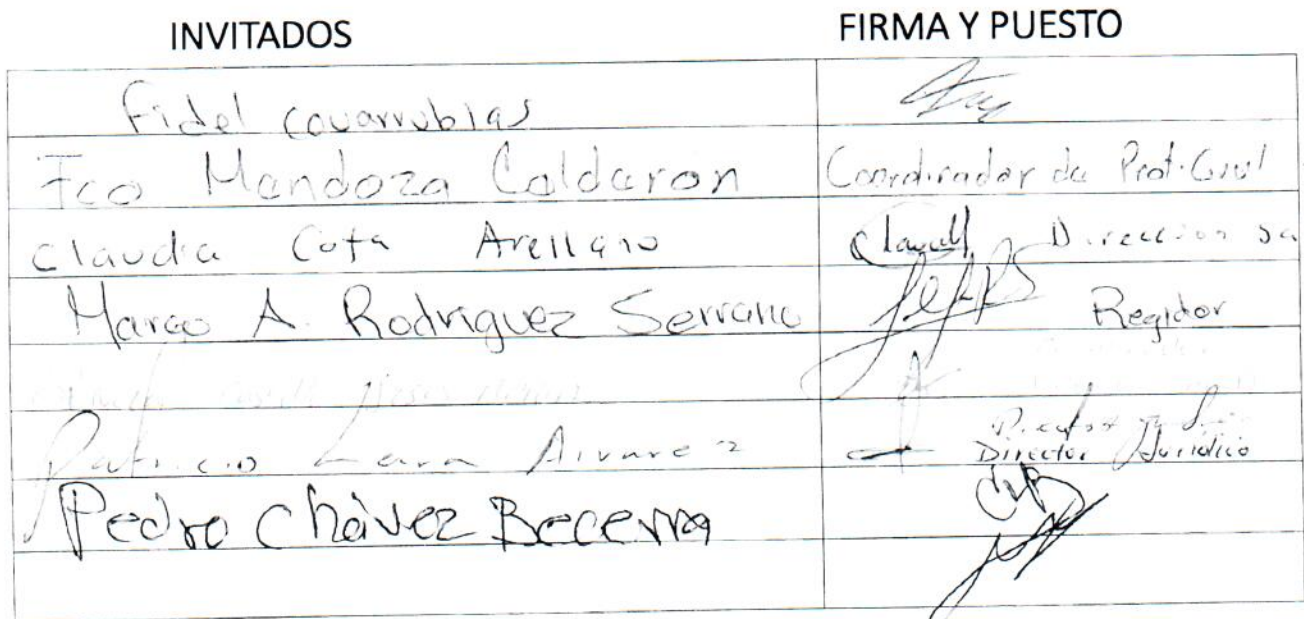 INVITADOS FIRMA Y PUESTO
Fidel Covarrubias
Fco Mendoza Calderon Coordinador de Prot. Civil
Claudia Cota Arellano Direccion
Marco A. Rodriguez Serrano Regidor
Patricio Lara Alvarez Director Jurídico
Pedro Chávez Becerra